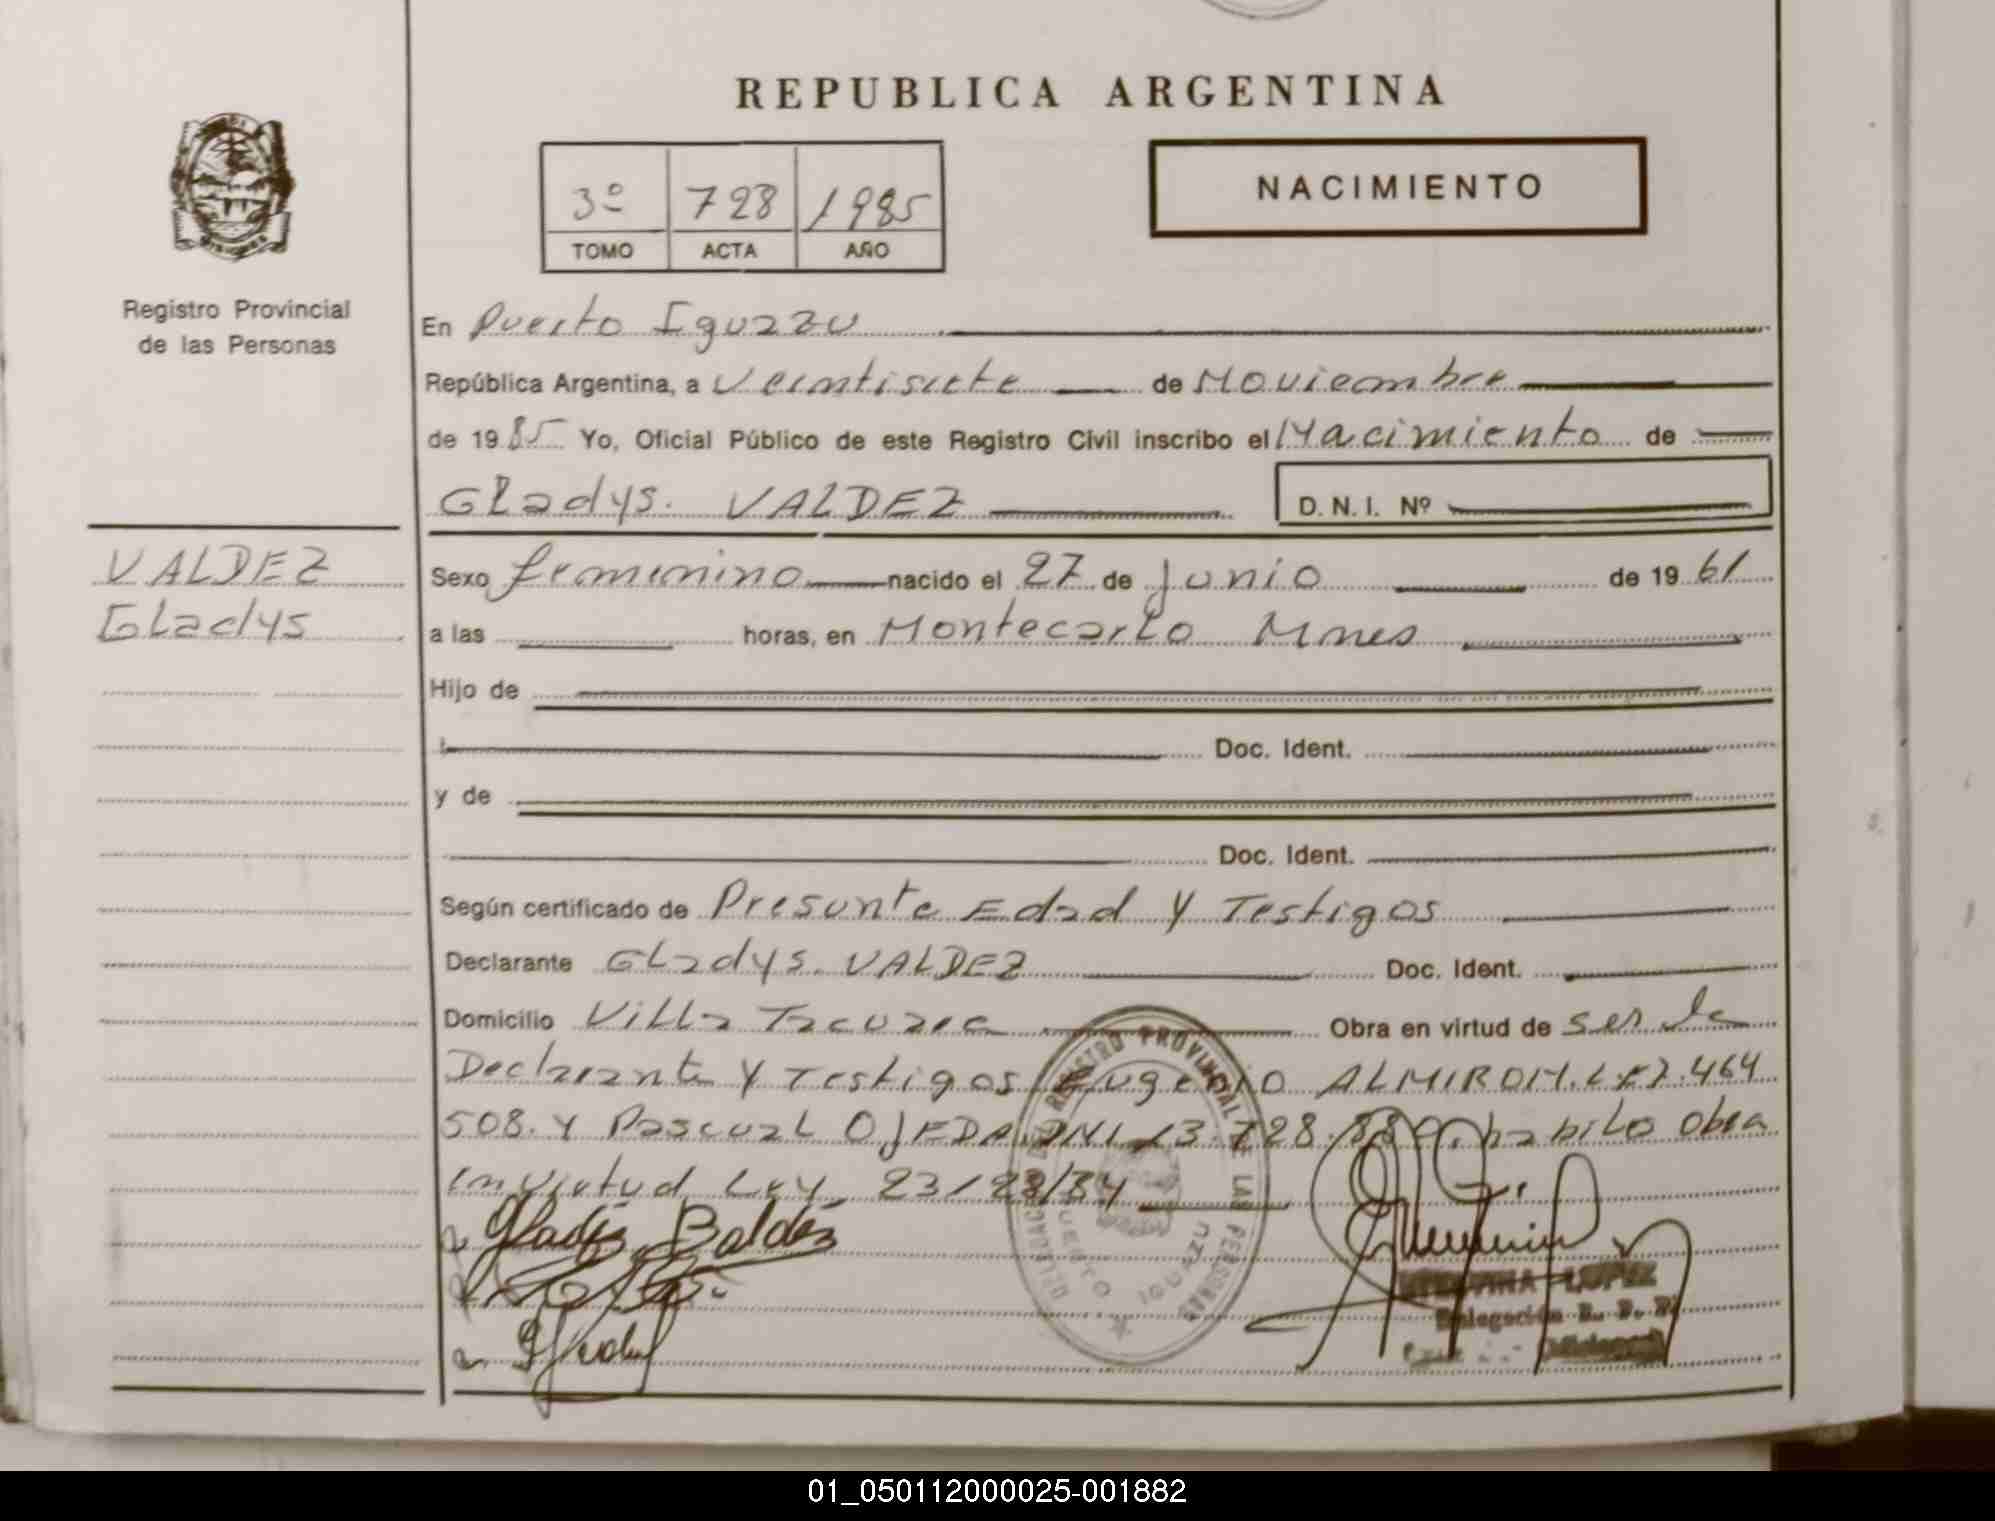 REPUBLICA ARGENTINA
3º 728 1985
TOMO ACTA AÑO
NACIMIENTO
Registro Provincial
de las Personas
En Puerto Iguazu
República Argentina, a Veintisiete de Noviembre
de 1985 Yo, Oficial Público de este Registro Civil inscribo el Nacimiento de
Gladys. VALDEZ D.N.I. Nº
VALDEZ
Gladys
Sexo femenino nacido el 27 de Junio de 1961
a las horas, en Montecarlo Mnes
Hijo de
Doc. Ident.
y de
Doc. Ident.
Según certificado de Presunta Edad y Testigos
Declarante Gladys. VALDEZ Doc. Ident.
Domicilio Villa Tacuara Obra en virtud de ser la
Declarante y Testigos Eugenio ALMIRON. 464
508. y Pascual OJEDA DNI 13.728. habilo Obra
Ley 23/
Gladis Baldes
DELEGACION DEL REGISTRO PROVINCIAL DE LAS PERSONAS
PUERTO IGUAZU
LOPEZ
Delegación R. P. P.
(Misiones)
01_050112000025-001882